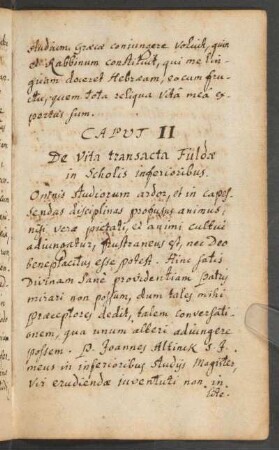 studium Græcæ coniungere voluit, quin
et Rabbinum constituit, qui me lin¬
quam doceret Hebræam, eo cum fru¬
ctu, quem tota reliqua vita mea ex¬
portaturus sum.
CAPUT II
De vita transacta Fuldæ
in Scholis inferioribus.
Omnis studiorum ardor, et in capes¬
sendas disciplinas propensus animus,
nisi veræ pietati, et animi cultui
adiungatur, frustraneus est, nec Deo
beneplacitus esse potest. Hinc satis
Divinam sane providentiam patris
mirari non possum, dum tales mihi
præceptores dedit, talem conversati¬
onem, qua unum alteri adiungere
possem. P. Joannes Altink S. J.
meus in inferioribus studijs Magister,
vir erudiendæ iuventuti non in